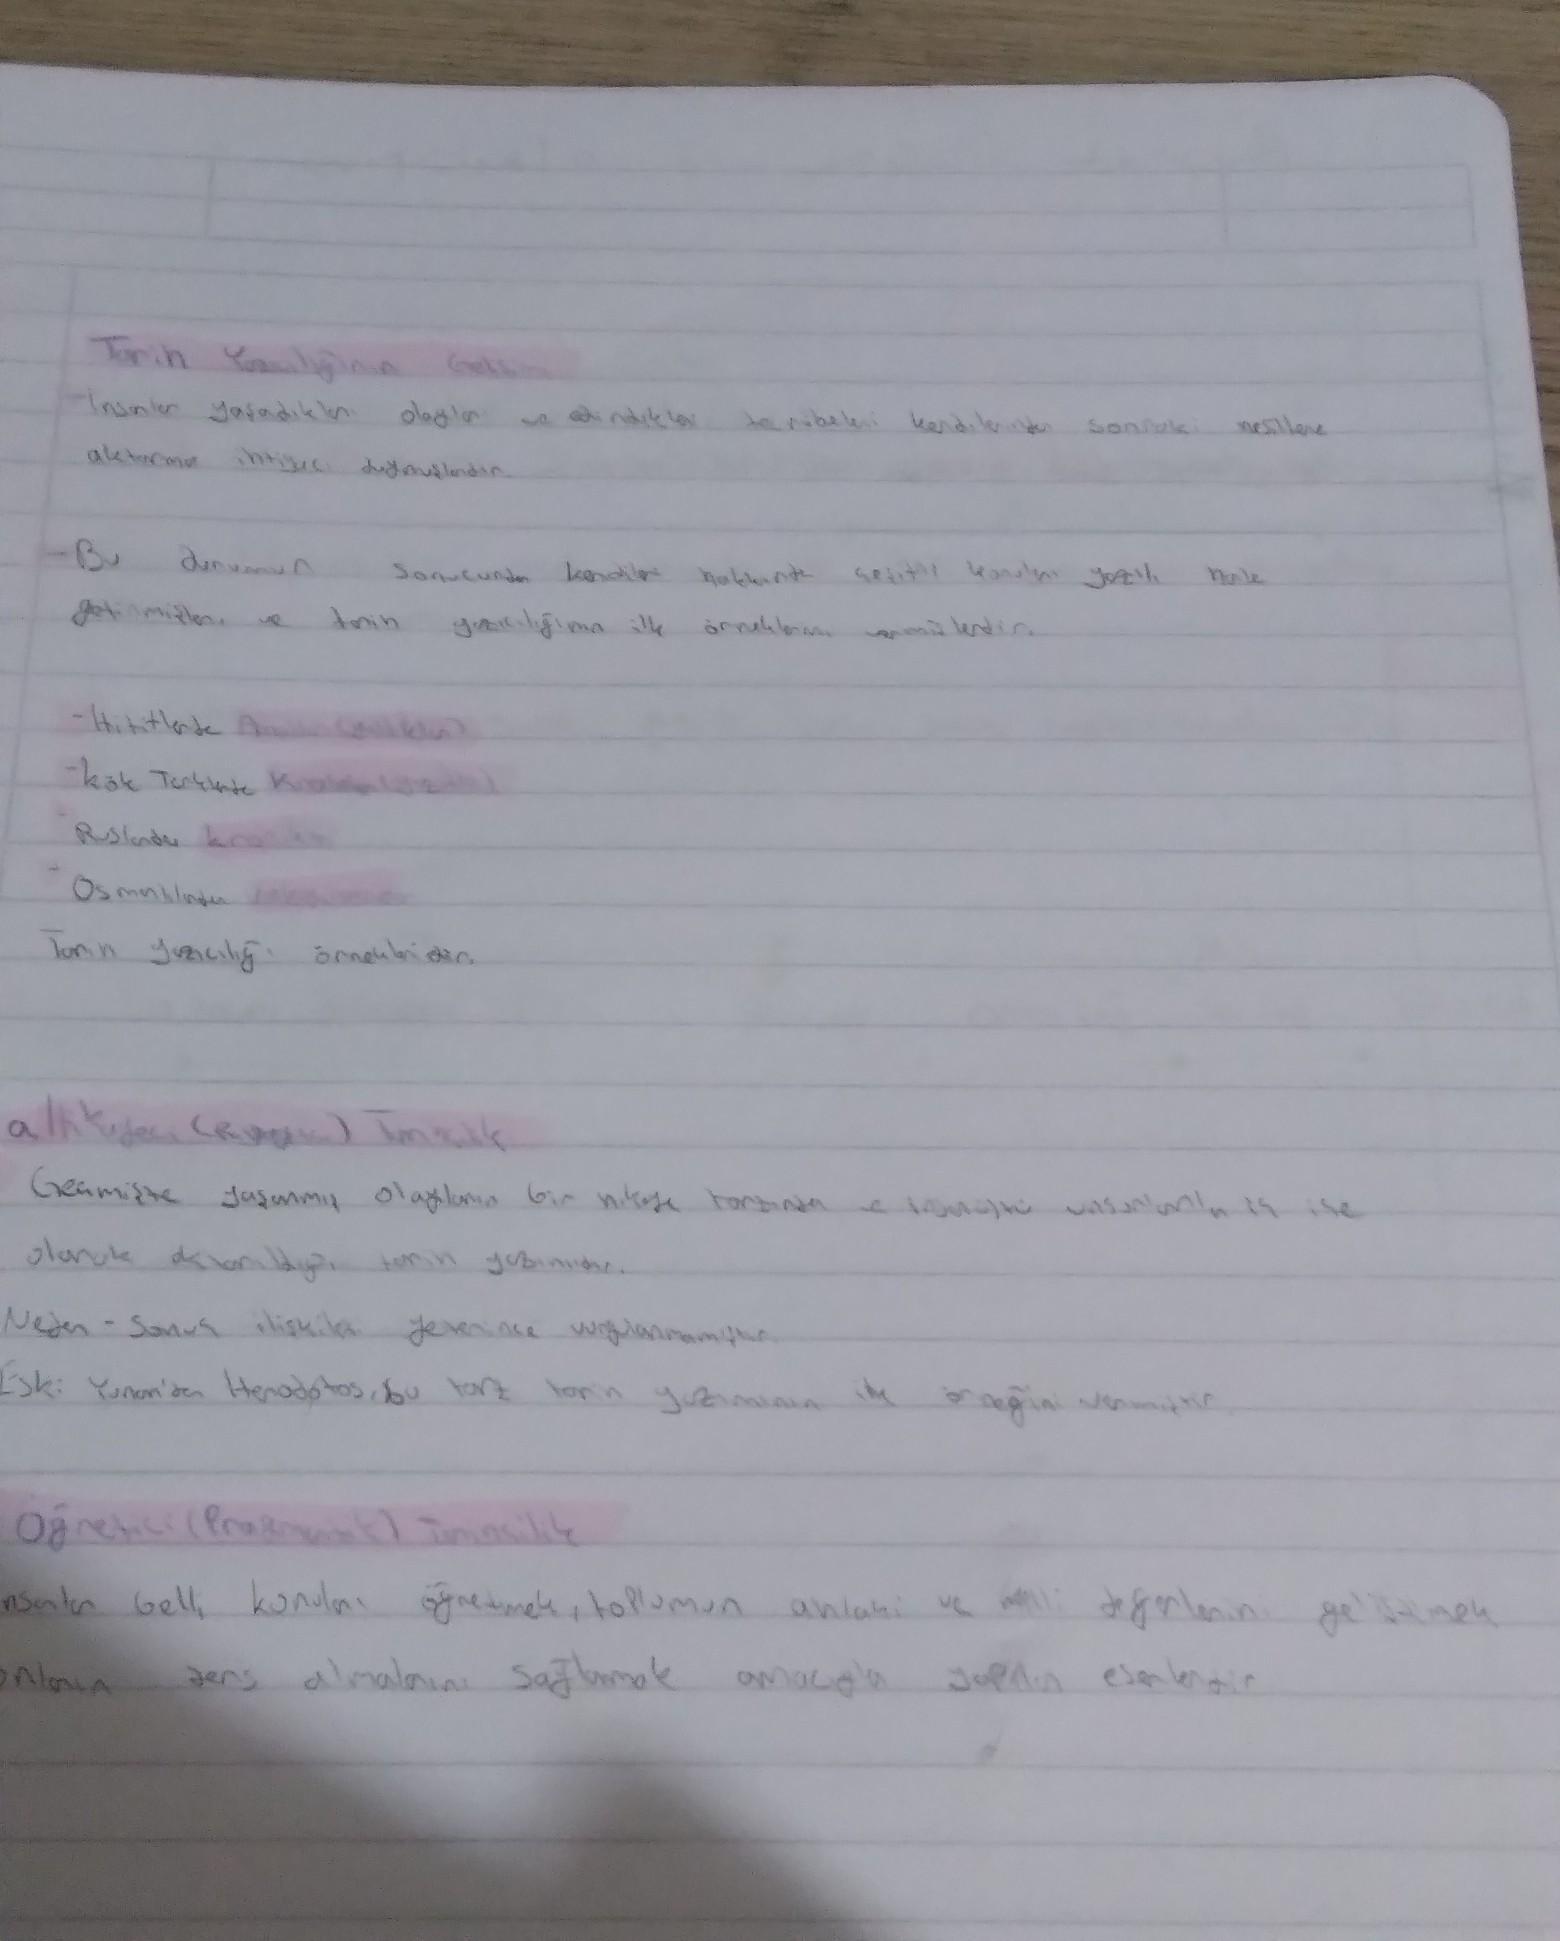 Tarih Yazıcılığının Gelişimi
- İnsanlar yaşadıkları olayları ve edindikleri tecrübeleri kendilerinden sonraki nesillere
aktarma ihtiyacı duymuşlardır.
- Bu durumun sonucunda kendileri hakkında çeşitli konuları yazılı hale
getirmişler ve tarih yazıcılığının ilk örneklerini vermişlerdir.
- Hititlerde
- Kök Türklerde
- Ruslarda
- Osmanlılarda
Tarih yazıcılığı örnekleridir.
a) Hikayeci Tarihçilik
Geçmişte yaşanmış olayların bir hikaye tarzında unsurlarla iç içe
olarak aktarıldığı tarih yazımıdır.
Neden - Sonuç ilişkileri yeterince vurgulanmamıştır.
Eski Yunan'dan Herodotos, bu tarz tarih yazımının ilk örneğini vermiştir.
Öğretici (Pragmatik) Tarihçilik
belli konuları öğretmek, toplumun ahlaki ve milli değerlerini geliştirmek
ders almalarını sağlamak amacıyla yapılan eserlerdir